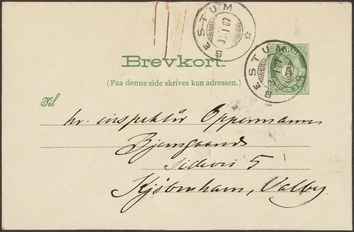 BESTUM
BESTUM
Brevkort.
(Paa denne side skrives kun adressen.)
Til
hr. inspektør Oppermann
Bjerregaards
Sidevei 5
Kjøbenhavn, Valby